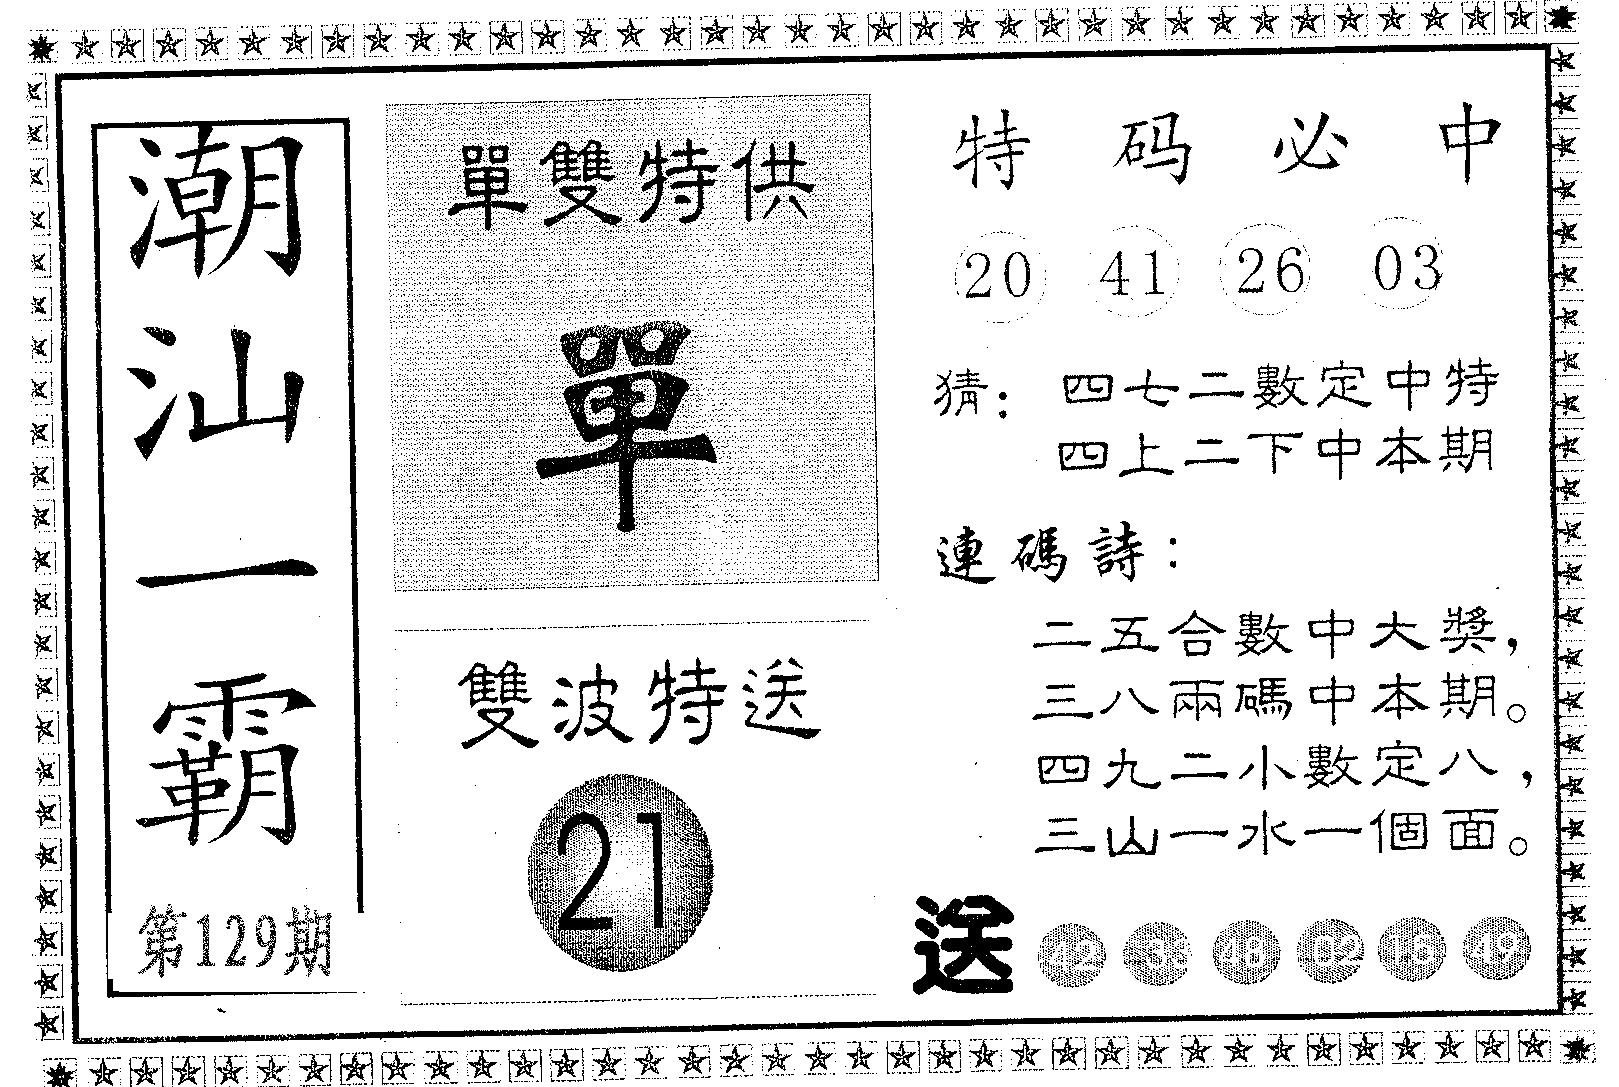 潮汕一霸
第129期
單雙特供
單
雙波特送
21
特码必中
20 41 26 03
猜：四七二數定中特
四上二下中本期
連碼詩：
二五合數中大獎，
三八兩碼中本期。
四九二小數定八，
三山一水一個面。
送 42 48 02 16 49